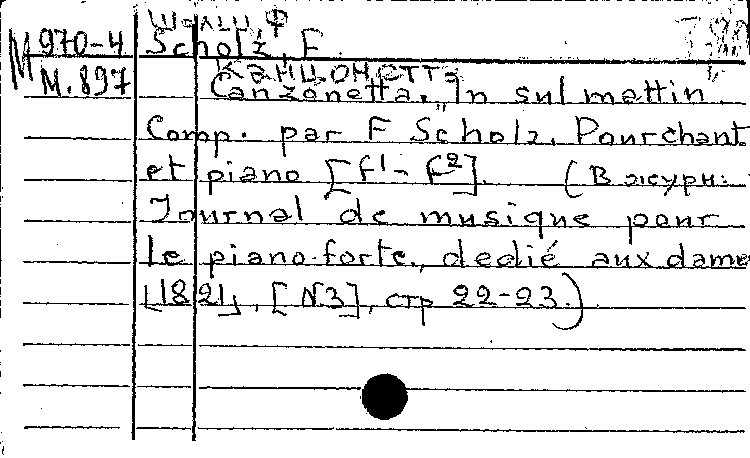 Шольц Ф
М 970-4 Scholz, F.
Канцонетта
М. 897 Canzonetta. "In sul mattin.
Comp. par F Scholz. Pour chant
et piano [f¹ - f²]. (В журн:
Journal de musique pour
le piano-forte, dedié aux dame
[1821], [N3], стр 22-23.)